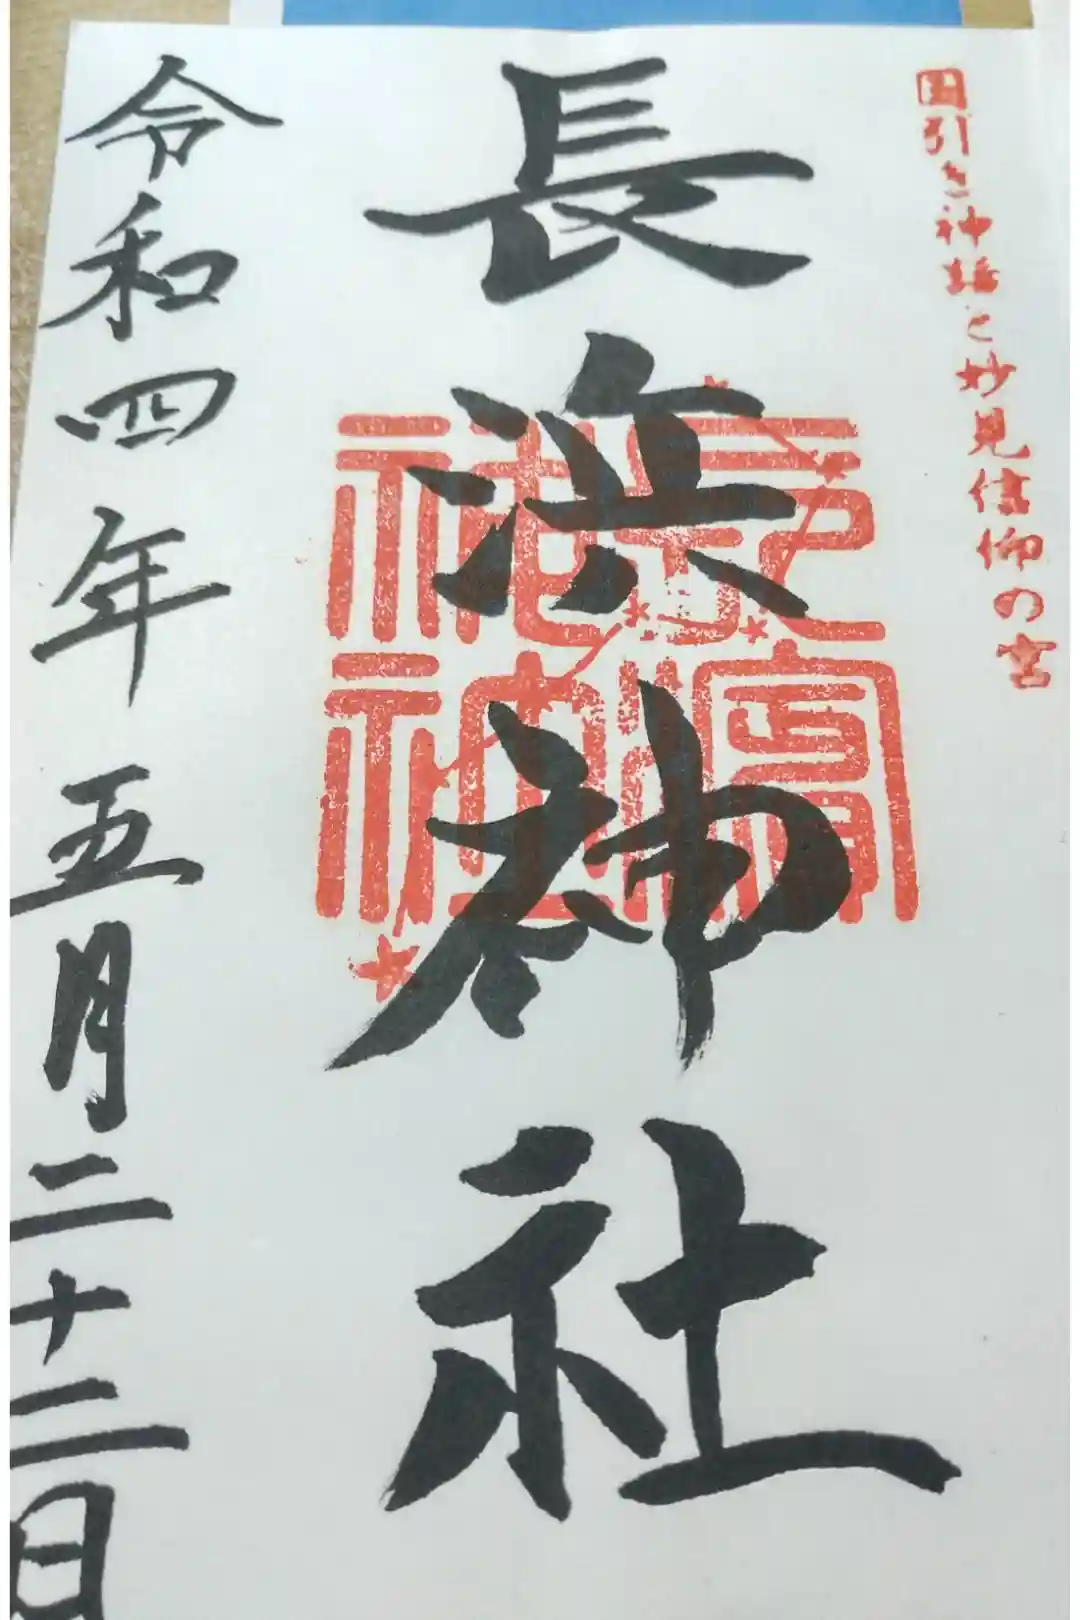 国引き神話と妙見信仰の宮
長浜神社
長濱
神社
令和四年五月二十二日